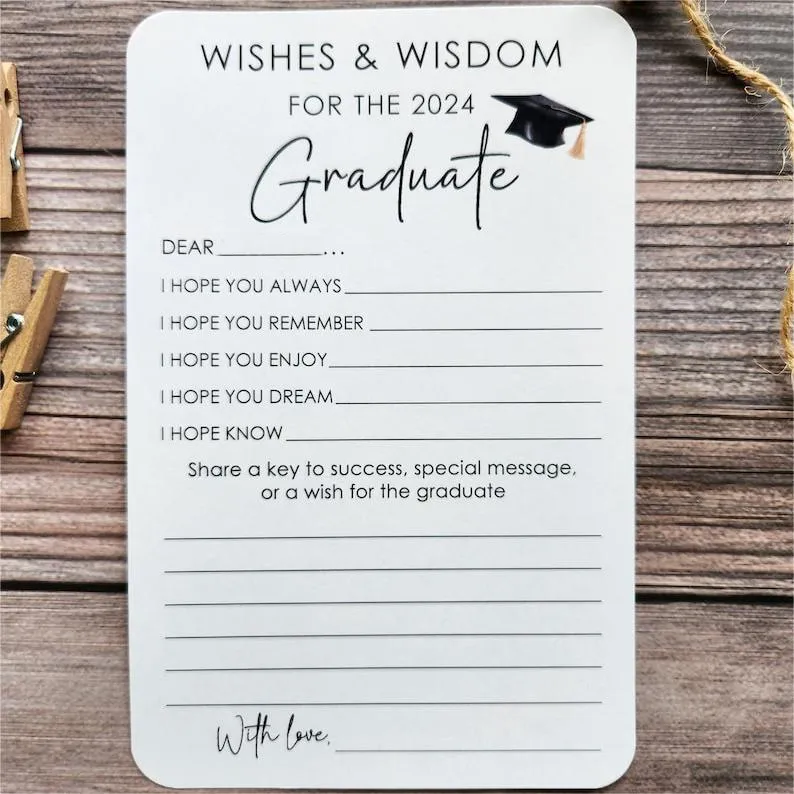 WISHES & WISDOM
FOR THE 2024
Graduate
DEAR __________...
I HOPE YOU ALWAYS
I HOPE YOU REMEMBER
I HOPE YOU ENJOY
I HOPE YOU DREAM
I HOPE KNOW
Share a key to success, special message,
or a wish for the graduate
With love,